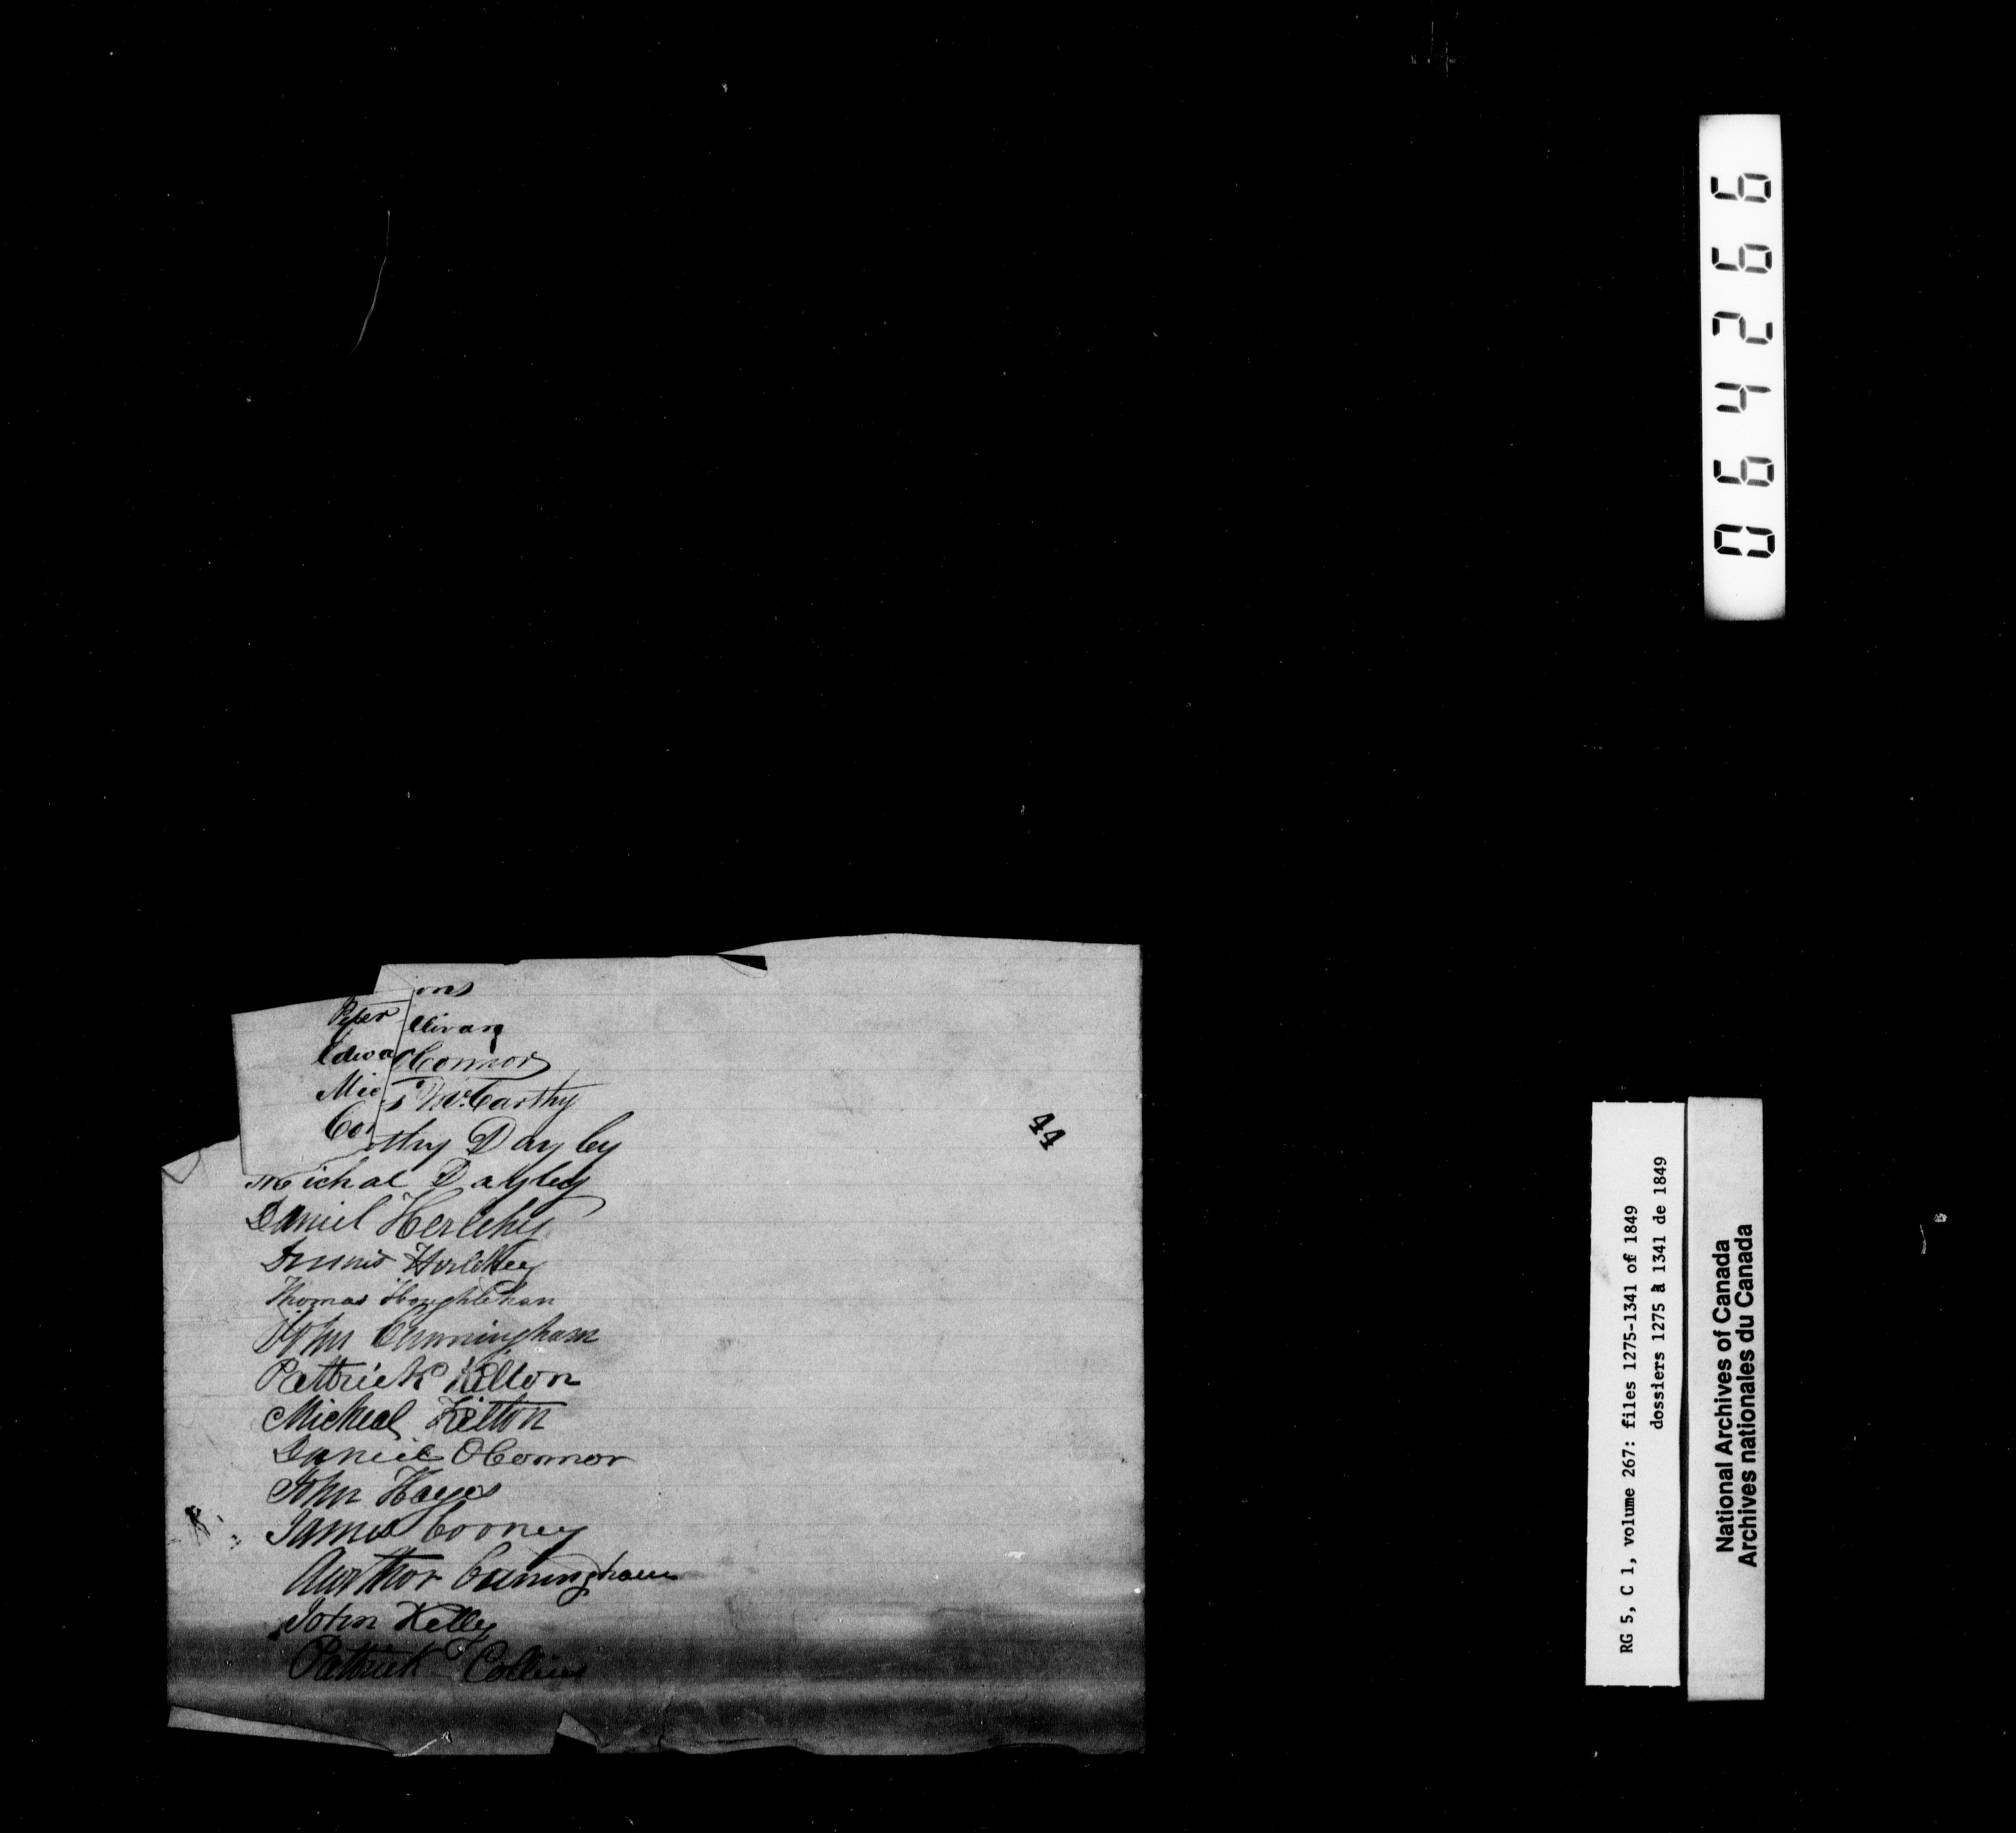 ons
Peter
llivan
Edwar
OConnor
Mic
s McCarthy
Cor
thy Dayley
Michal Dayley
Daniel Herlehy
Dennis Herlehey
Thomas
John Cunningham
Pattrick Kilton
Micheal Kilton
Daniel OConnor
John Hayes
James Cooney
Aurthor Cuningham
John Kelly
Pattrick Collins
44
064266
RG 5, C 1, volume 267: files 1275-1341 of 1849
dossiers 1275 à 1341 de 1849
National Archives of Canada
Archives nationales du Canada